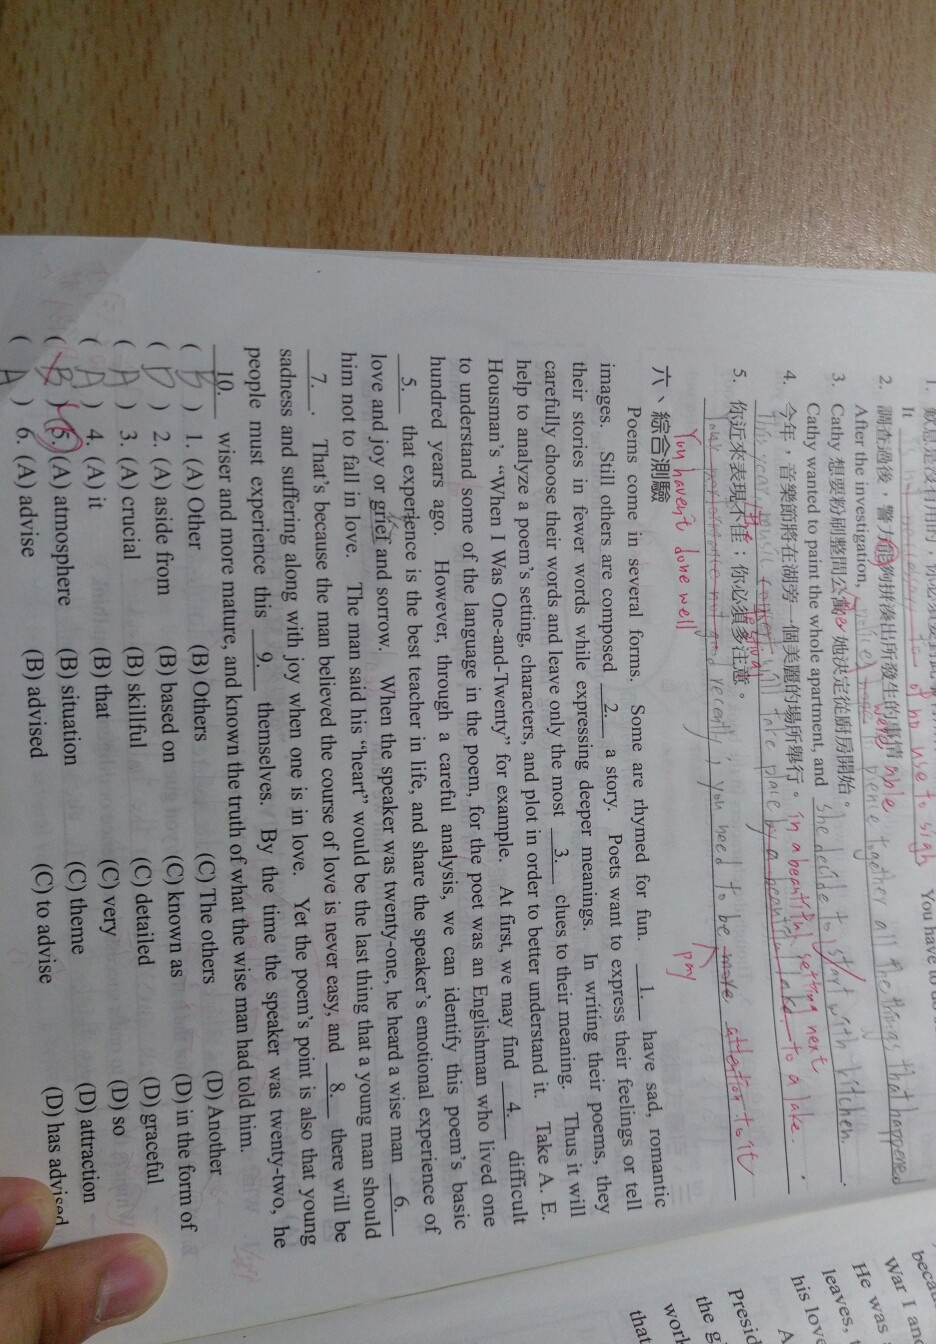 It
of no use to sigh
You have to
2. 調查過後，警方能夠拼湊出所發生的事情
After the investigation,
were able
piece together all the things that happened
3. Cathy 想要粉刷整間公寓，她決定從廚房開始。
Cathy wanted to paint the whole apartment, and she decide to start with kitchen.
4. 今年，音樂節將在湖旁一個美麗的場所舉行。
in a beautiful setting next
This year, music will take place by a lake to a lake.
5. 你近來表現不佳；你必須多注意。
recently; you need to be more attention to it
You haven't done well
pay
六、綜合測驗
Poems come in several forms. Some are rhymed for fun. 1. have sad, romantic
images. Still others are composed 2. a story. Poets want to express their feelings or tell
their stories in fewer words while expressing deeper meanings. In writing their poems, they
carefully choose their words and leave only the most 3. clues to their meaning. Thus it will
help to analyze a poem's setting, characters, and plot in order to better understand it. Take A. E.
Housman's "When I Was One-and-Twenty" for example. At first, we may find 4. difficult
to understand some of the language in the poem, for the poet was an Englishman who lived one
hundred years ago. However, through a careful analysis, we can identify this poem's basic
5. that experience is the best teacher in life, and share the speaker's emotional experience of
love and joy or grief and sorrow. When the speaker was twenty-one, he heard a wise man 6.
him not to fall in love. The man said his "heart" would be the last thing that a young man should
7. . That's because the man believed the course of love is never easy, and 8. there will be
sadness and suffering along with joy when one is in love. Yet the poem's point is also that young
people must experience this 9. themselves. By the time the speaker was twenty-two, he
10. wiser and more mature, and known the truth of what the wise man had told him.
( B ) 1. (A) Other (B) Others (C) The others (D) Another
( D ) 2. (A) aside from (B) based on (C) known as (D) in the form of
( A ) 3. (A) crucial (B) skillful (C) detailed (D) graceful
( A ) 4. (A) it (B) that (C) very (D) so
( B ) 5. (A) atmosphere (B) situation (C) theme (D) attraction
( A ) 6. (A) advise (B) advised (C) to advise (D) has advised
War I and
He was
leaves,
his love
A
presid
the g
work
that